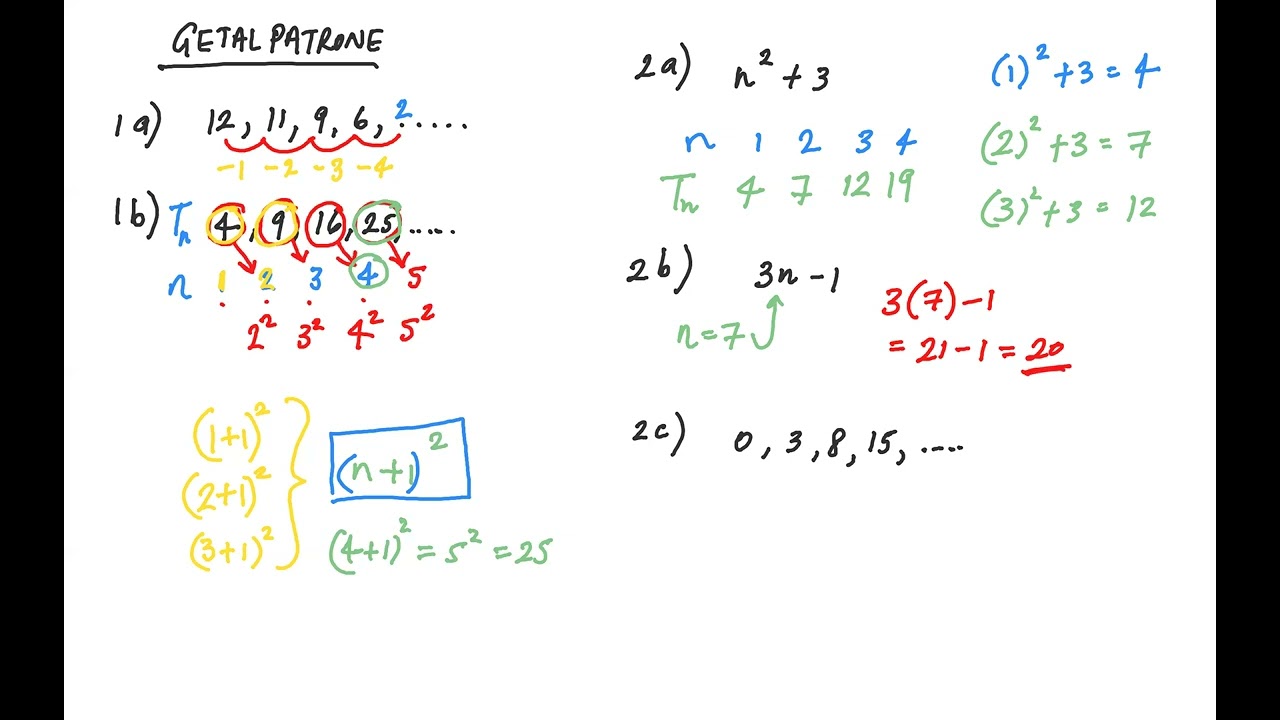 GETAL PATRONE
1a) 12, 11, 9, 6, 2.....
-1 -2 -3 -4
1b) Tn 4, 9, 16, 25, .....
n 1 2 3 4 5
2² 3² 4² 5²
(1+1)²
(2+1)²
(3+1)²
(n+1)²
(4+1)² = 5² = 25
2a) n² + 3
(1)² + 3 = 4
n 1 2 3 4
(2)² + 3 = 7
Tn 4 7 12 19
(3)² + 3 = 12
2b) 3n - 1
n = 7
3(7) - 1
= 21 - 1 = 20
2c) 0, 3, 8, 15, ....